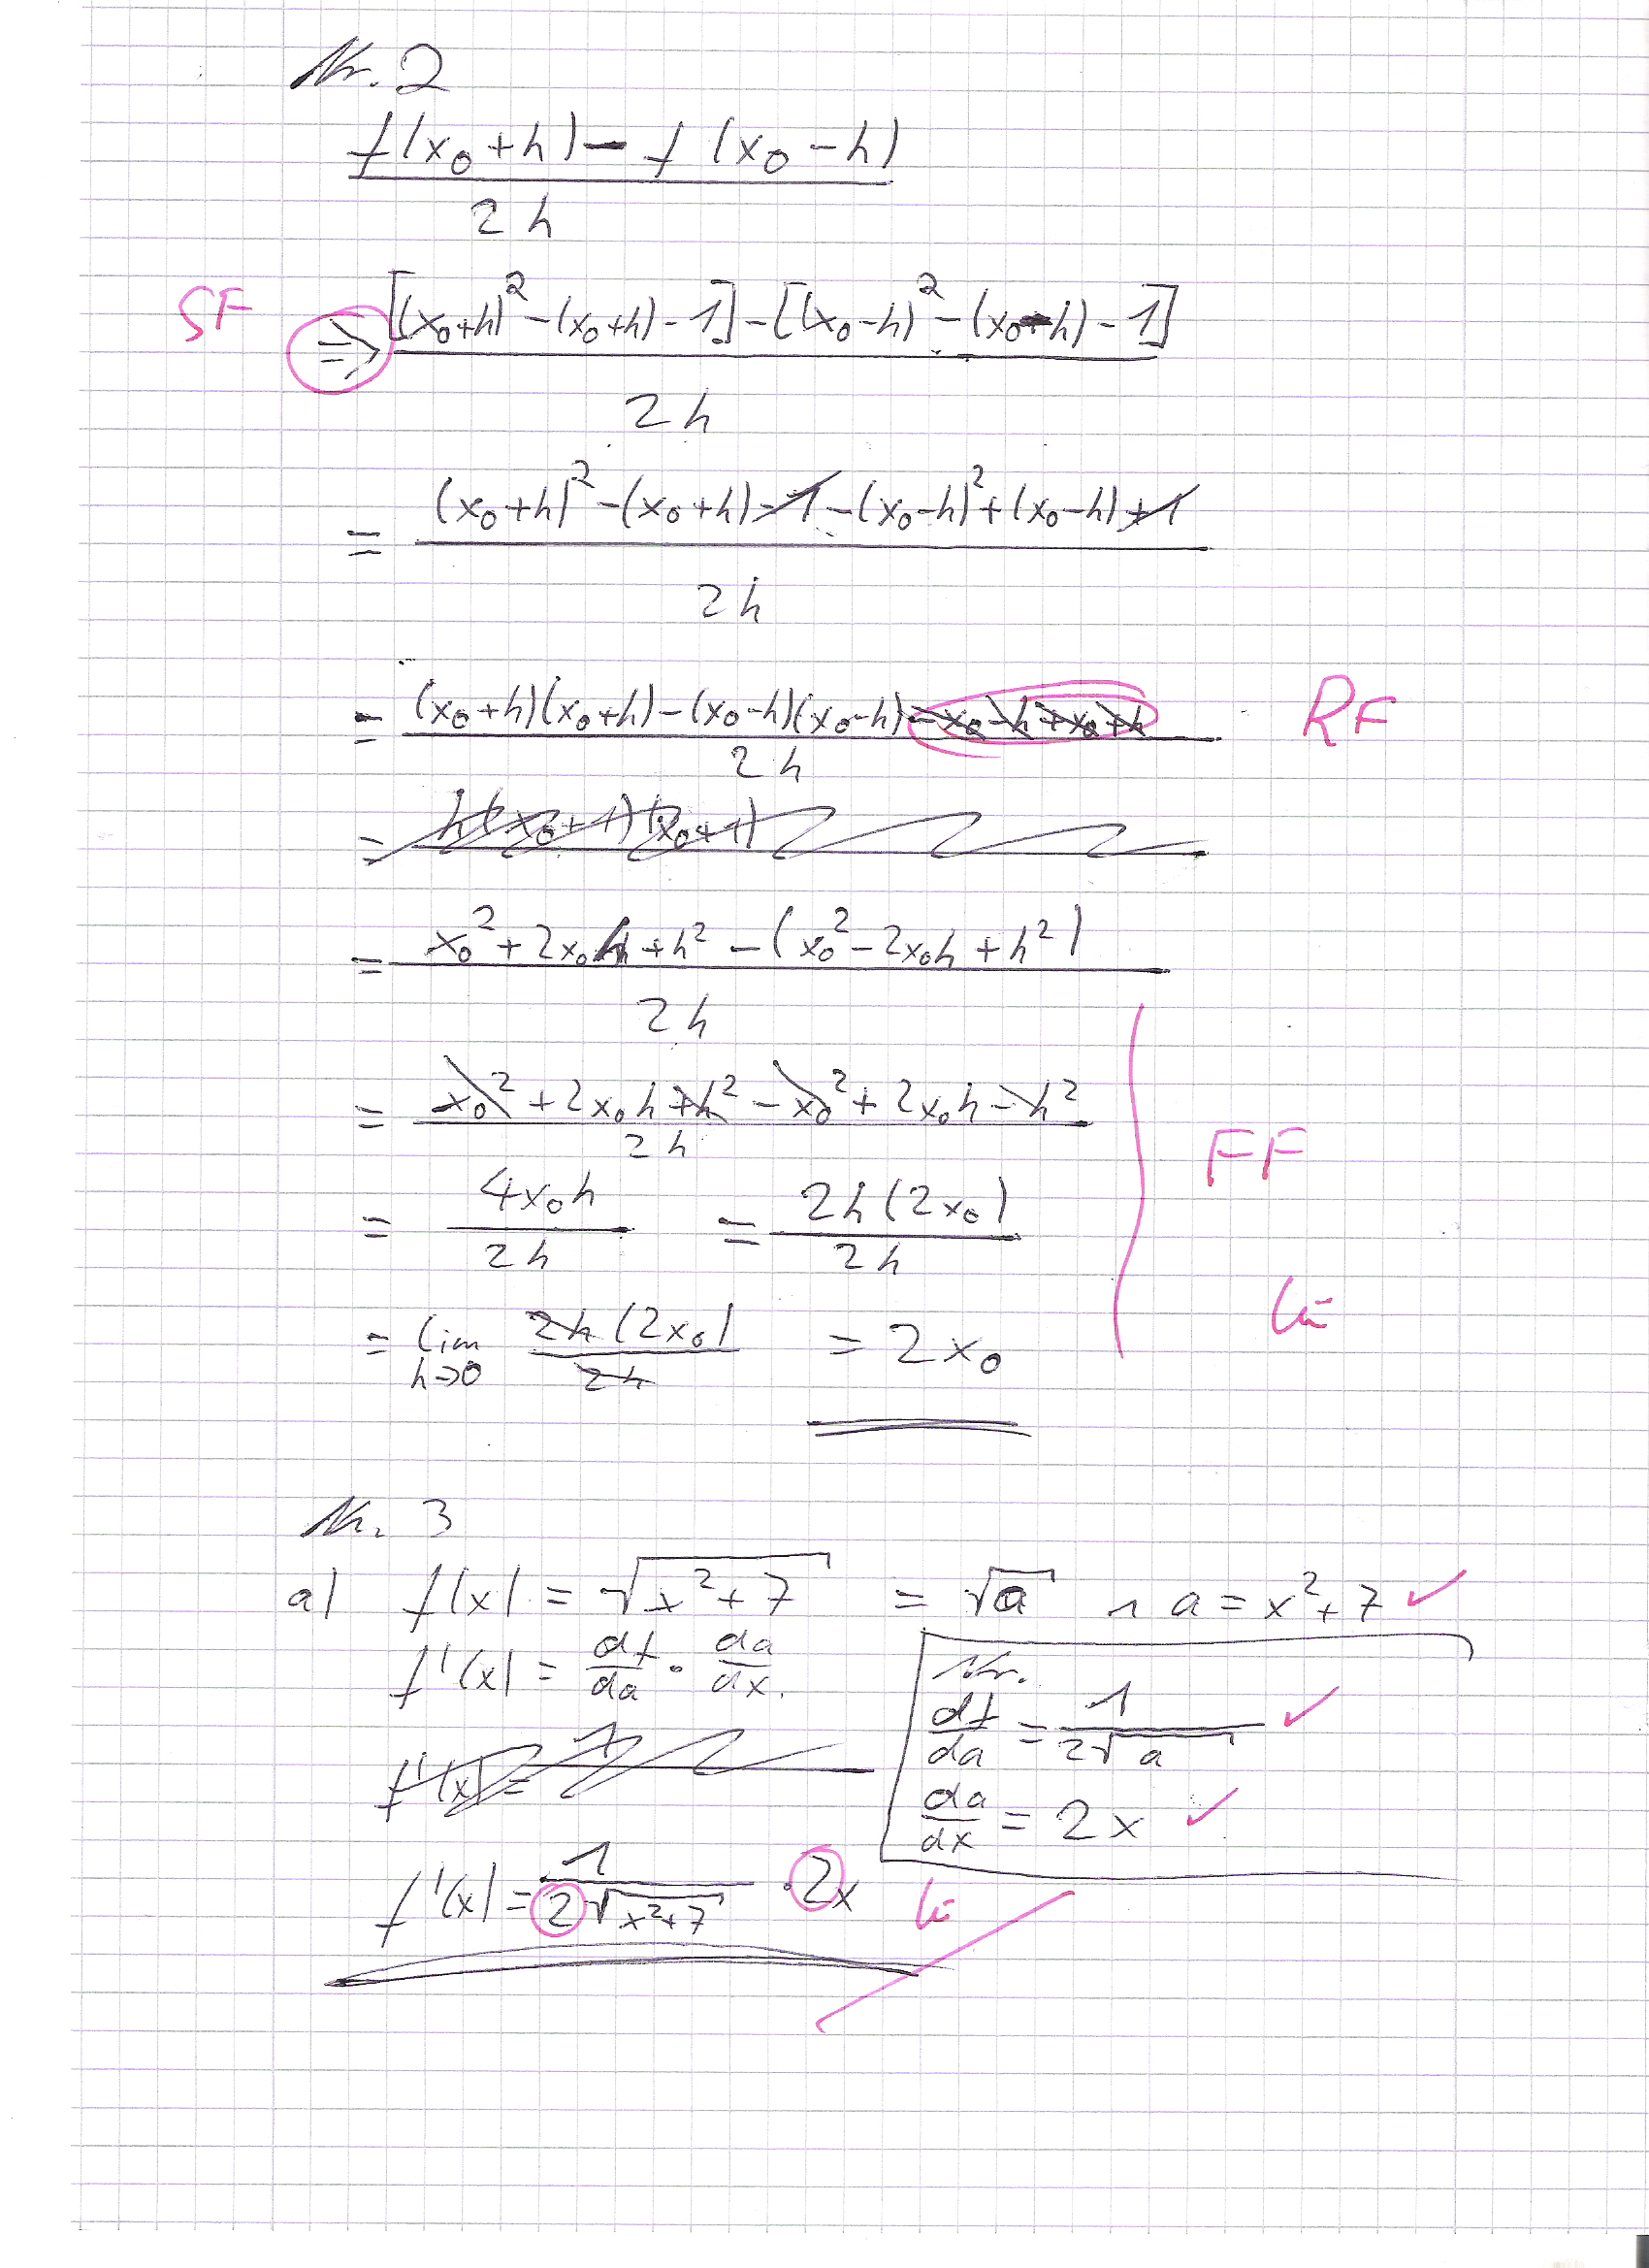 Nr. 2
f(x₀+h) − f(x₀−h)
2h
SF ⇒ [(x₀+h)² −(x₀+h) − 1] − [(x₀−h)² − (x₀−h) − 1]
2h
= (x₀+h)² −(x₀+h) − 1 − (x₀−h)² + (x₀−h) + 1
2h
= (x₀+h)(x₀+h) − (x₀−h)(x₀−h) − x₀ − h + x₀ + h RF
2h
= h(x₀+1)(x₀+1)
= x₀² + 2x₀h + h² − (x₀² − 2x₀h + h²)
2h
= x₀² + 2x₀h + h² − x₀² + 2x₀h − h²
2h
FF
= 4x₀h = 2h(2x₀)
2h 2h
= lim 2h(2x₀) = 2x₀
h→0 2h
Nr. 3
a) f(x) = √(x²+7) = √a ∧ a = x²+7 ✓
f'(x) = df/da · da/dx
Nr.
df/da = 1/(2√a) ✓
f'(x) =
da/dx = 2x ✓
f'(x) = 1/(2√(x²+7)) · 2x